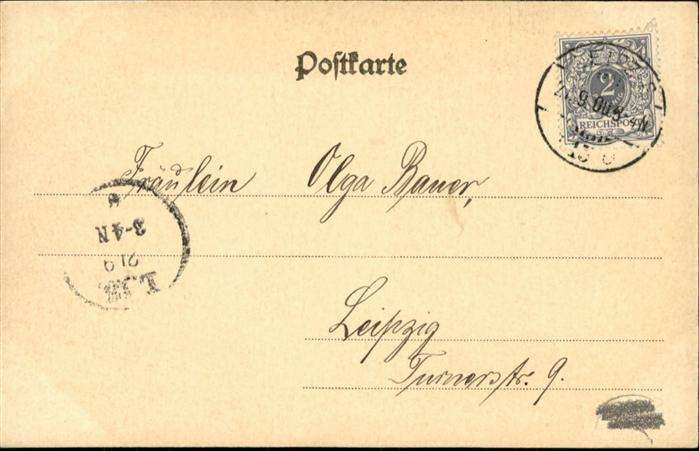 Postkarte
2
REICHSPOST
Fräulein Olga Bauer,
3-4 N
21 9
L.
Leipzig
Turnerstr. 9.